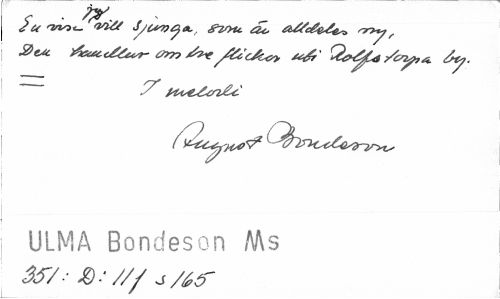 En visa jag vill sjunga, som är alldeles ny,
Den handlar om tre flickor uti Rolfstorps by.
I melodi
August Bondeson
ULMA Bondeson Ms
351: D: 11 f s 165